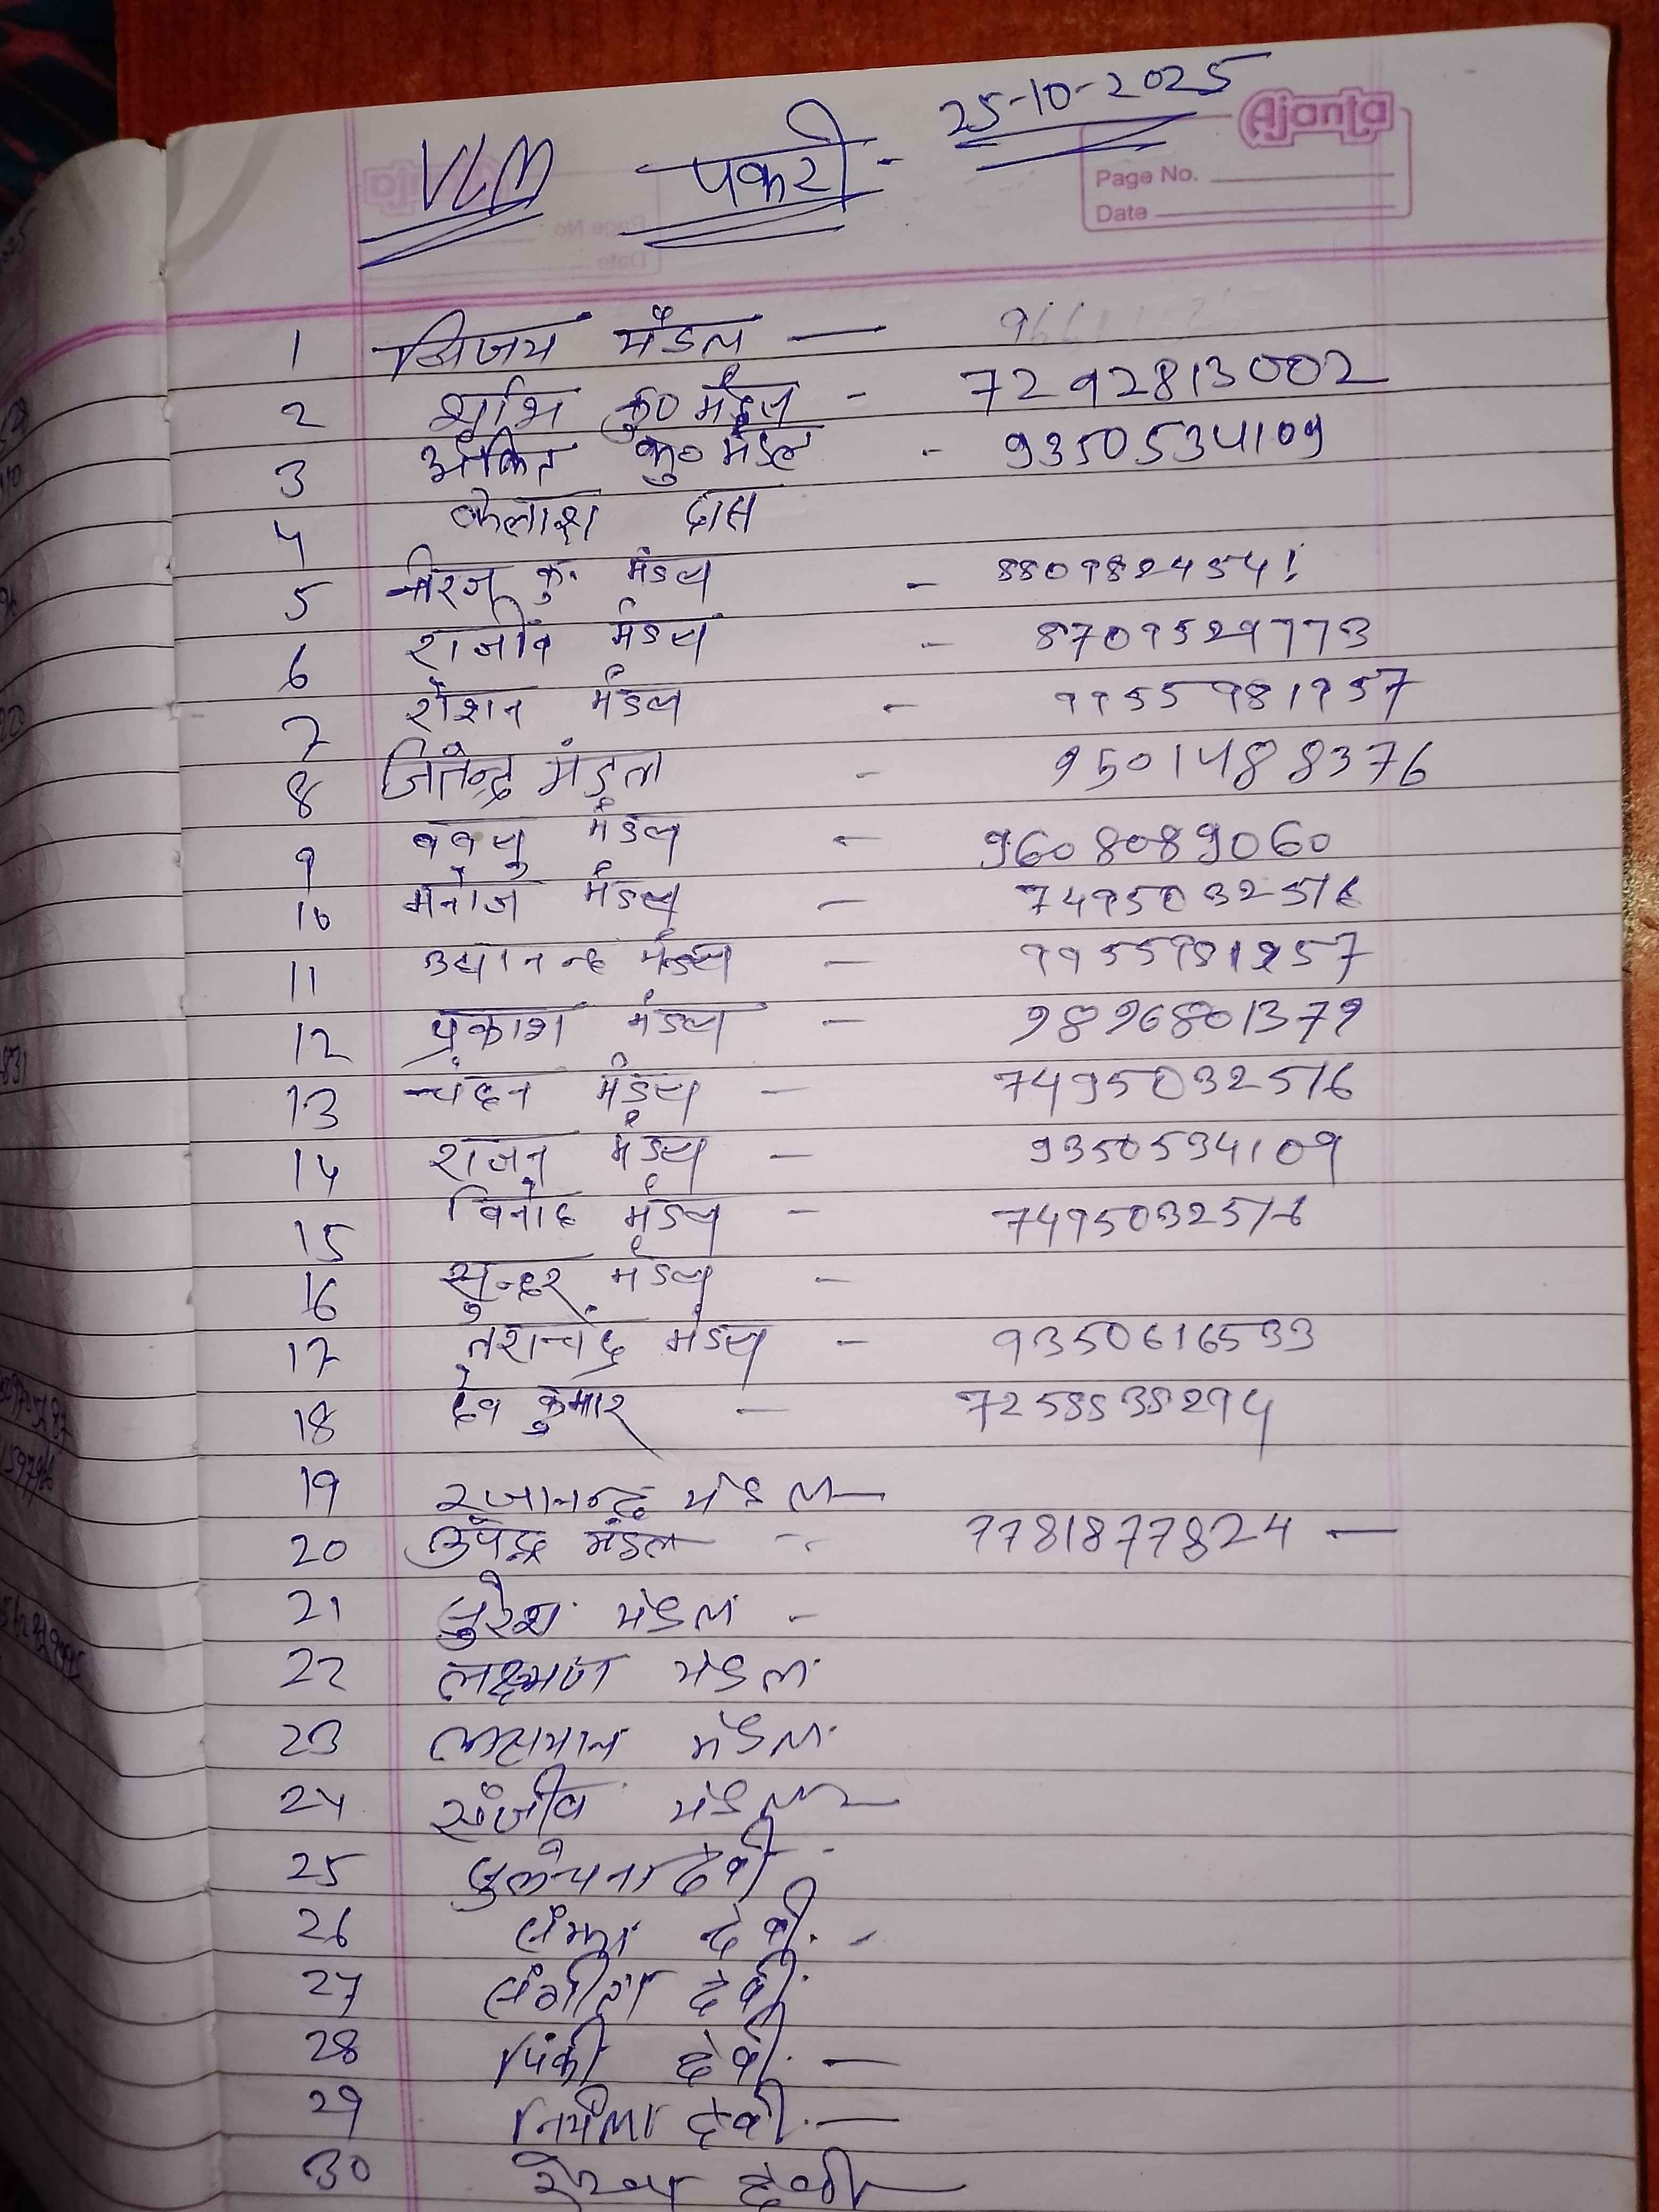 25-10-2025
VLM पकरी -
Ajanta
Page No.
Date
1 विजय मंडल — 966
2 कु० मंडल - 7292813002
3 अंकित कु० मंडल - 9350534109
4 कैलाश दास
5 नीरज कु. मंडल - 8809824541
6 राजीव मंडल - 8709529773
7 रोशन मंडल - 9955981957
8 जितेन्द्र मंडल - 9501488376
9 मंडल - 9608089060
10 मनोज मंडल - 7495032516
11 मंडल - 9955981957
12 प्रकाश मंडल - 9896801379
13 चंदन मंडल - 7495032516
14 राजन मंडल - 9350534109
15 विनोद मंडल - 7495032516
16 सुन्दर मंडल -
17 मंडल - 9350616533
18 देव कुमार - 7258538294
19 मंडल —
20 उपेन्द्र मंडल - 7781877824 —
21 सुरेश मंडल -
22 लक्ष्मण मंडल
23 मंडल
24 संजीव मंडल —
25 देवी -
26 देवी -
27 संगीता देवी
28 पिंकी देवी —
29 निर्मला देवी —
30 देवी